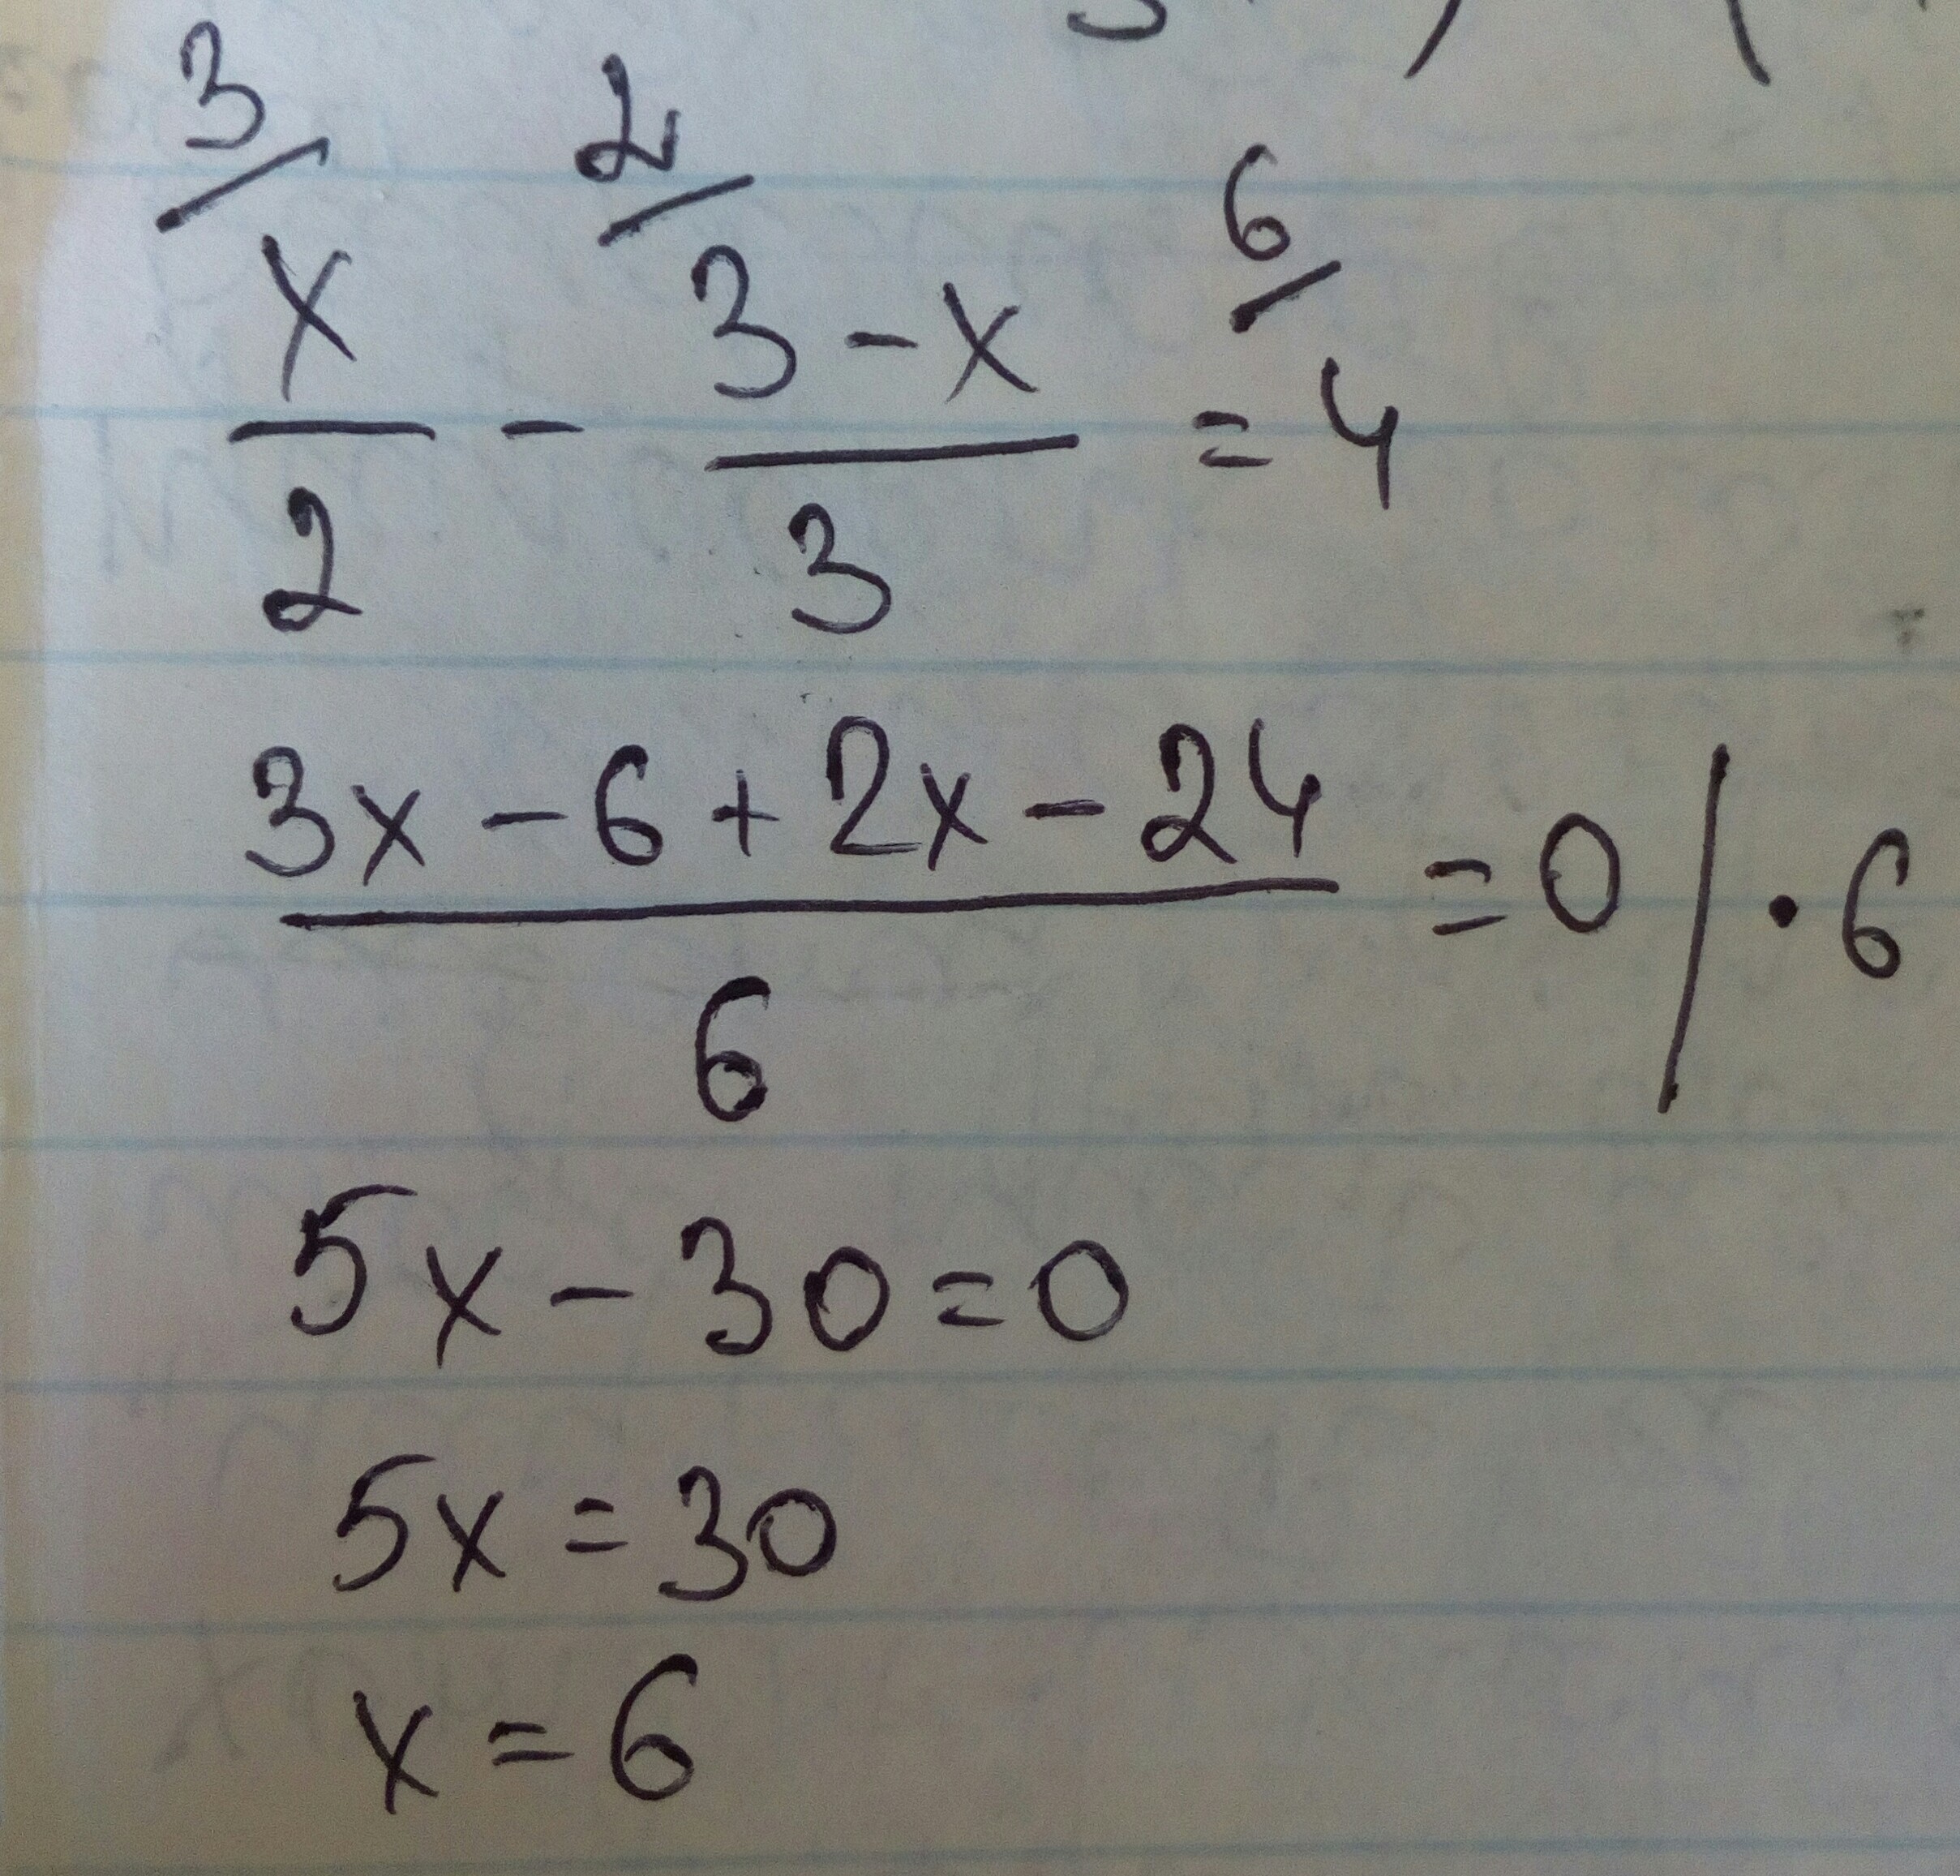 3/ 2/ 6/
x/2 - (3-x)/3 = 4
(3x - 6 + 2x - 24)/6 = 0 | · 6
5x - 30 = 0
5x = 30
x = 6